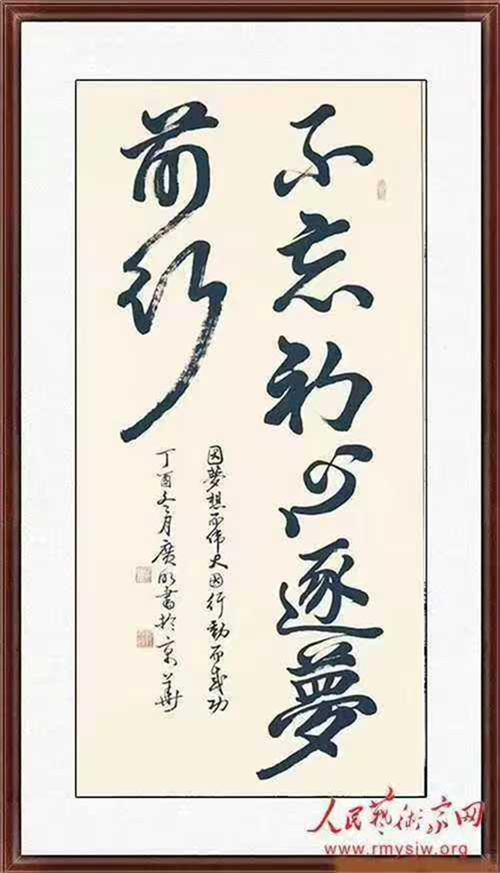 不忘初心逐夢
前行
因夢想而偉大因行動而成功
丁酉冬月廣明書於京華
人民藝術家网
www.rmysjw.org